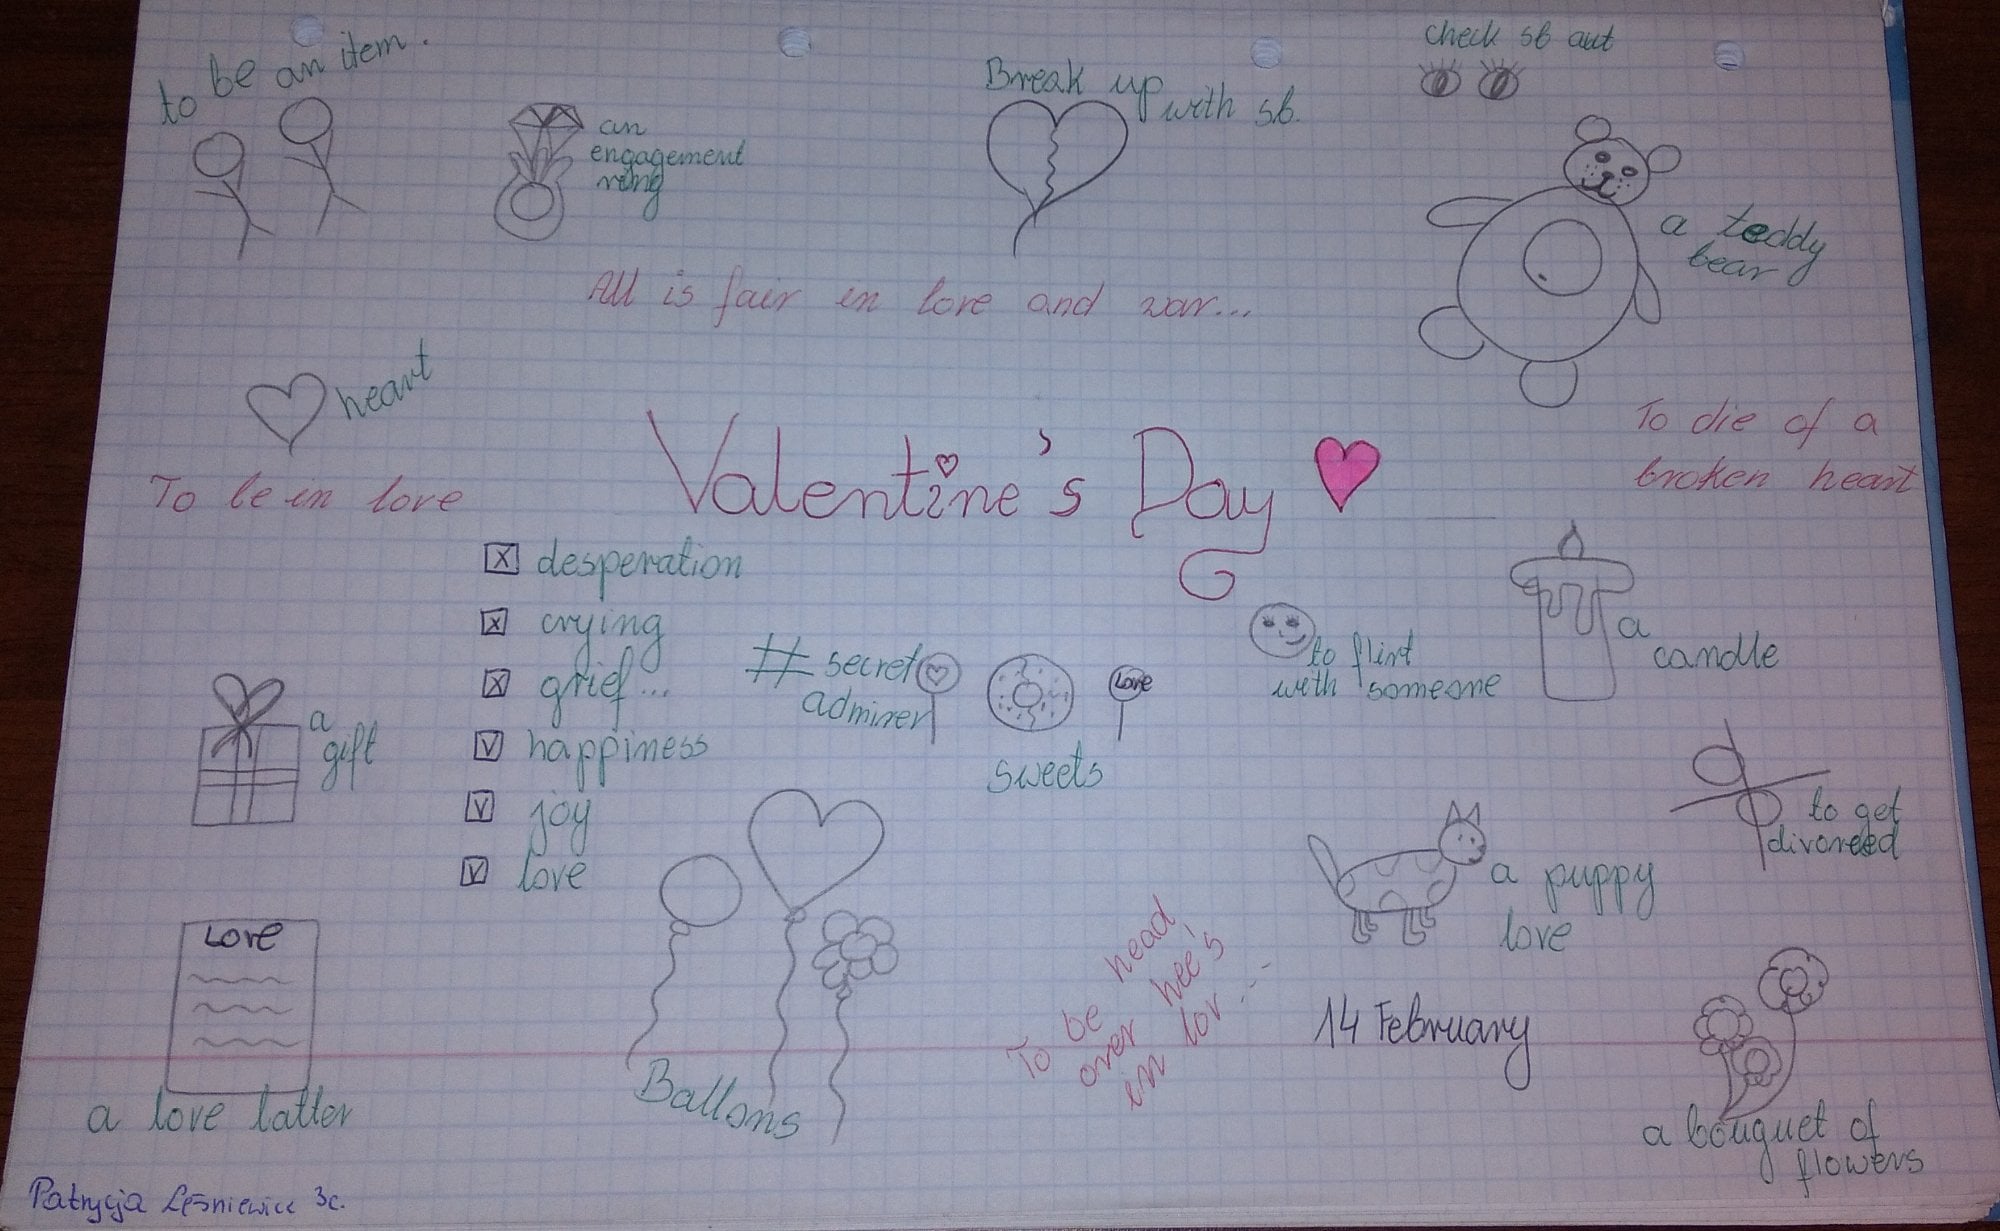 to be an item.
an
engagement
ring
Break up
with sb.
check sb out
a teddy
bear
All is fair in love and war...
heart
To be in love
Valentine's Day
To die of a
broken heart
x desperation
x crying
x grief...
v happiness
v joy
v love
# secret
admirer
Love
sweets
to flirt
with someone
a
candle
a
gift
to get
divorced
a puppy
love
LOVE
a love latter
Ballons
To be head
over hee's
in lov...
14 February
a bouquet of
flowers
Patrycja Leśniewicz 3c.